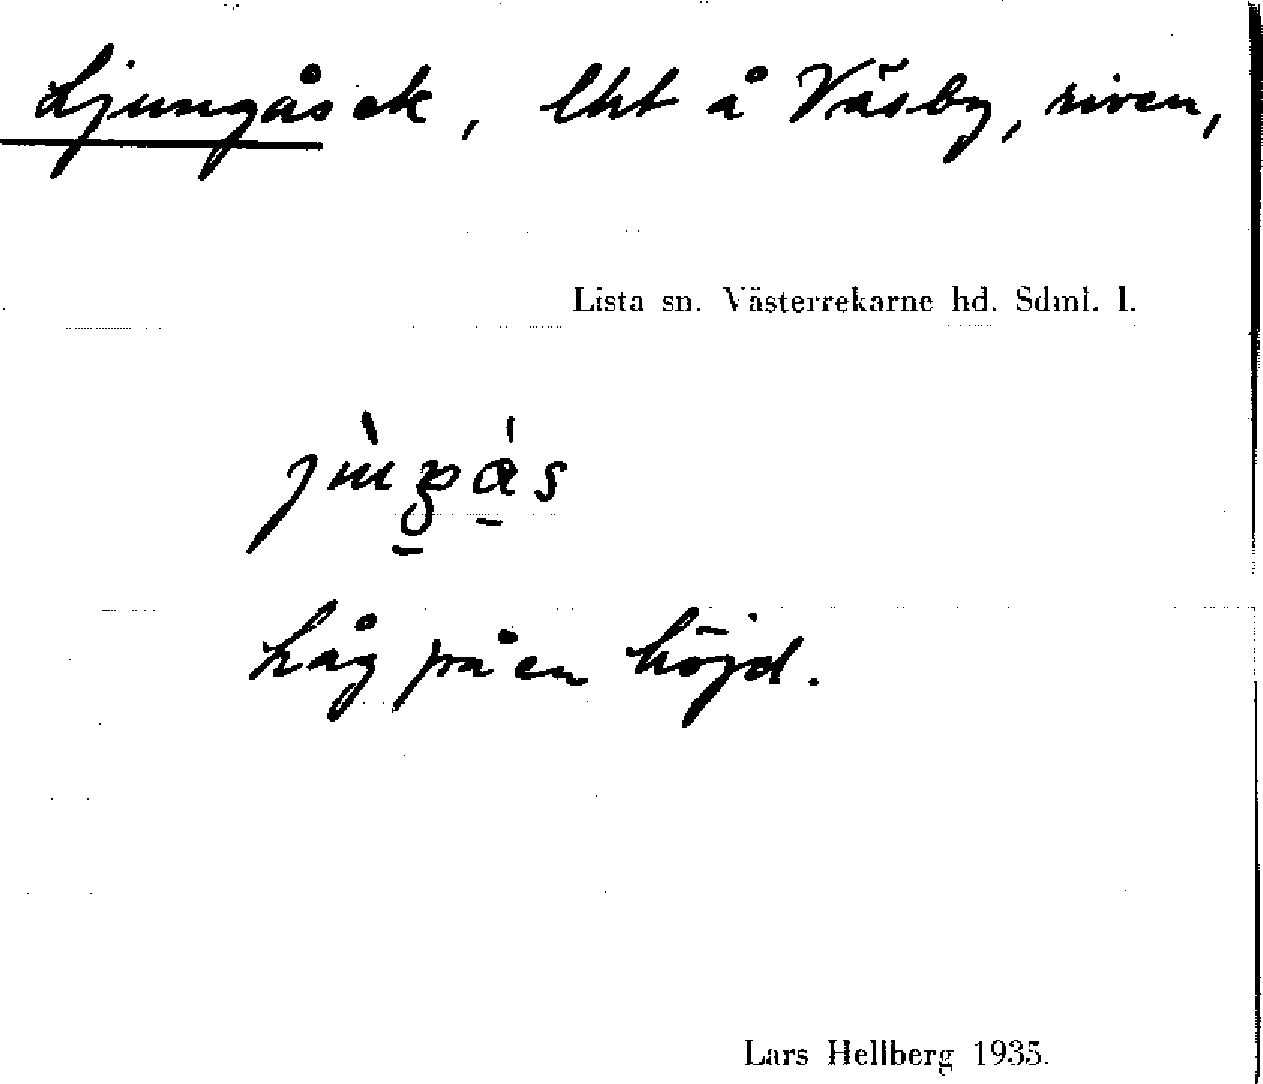 Ljungås ek, lht å Väsby, riven,
Lista sn. Västerrekarne hd. Sdml. l.
låg på en höjd.
Lars Hellberg 1935.